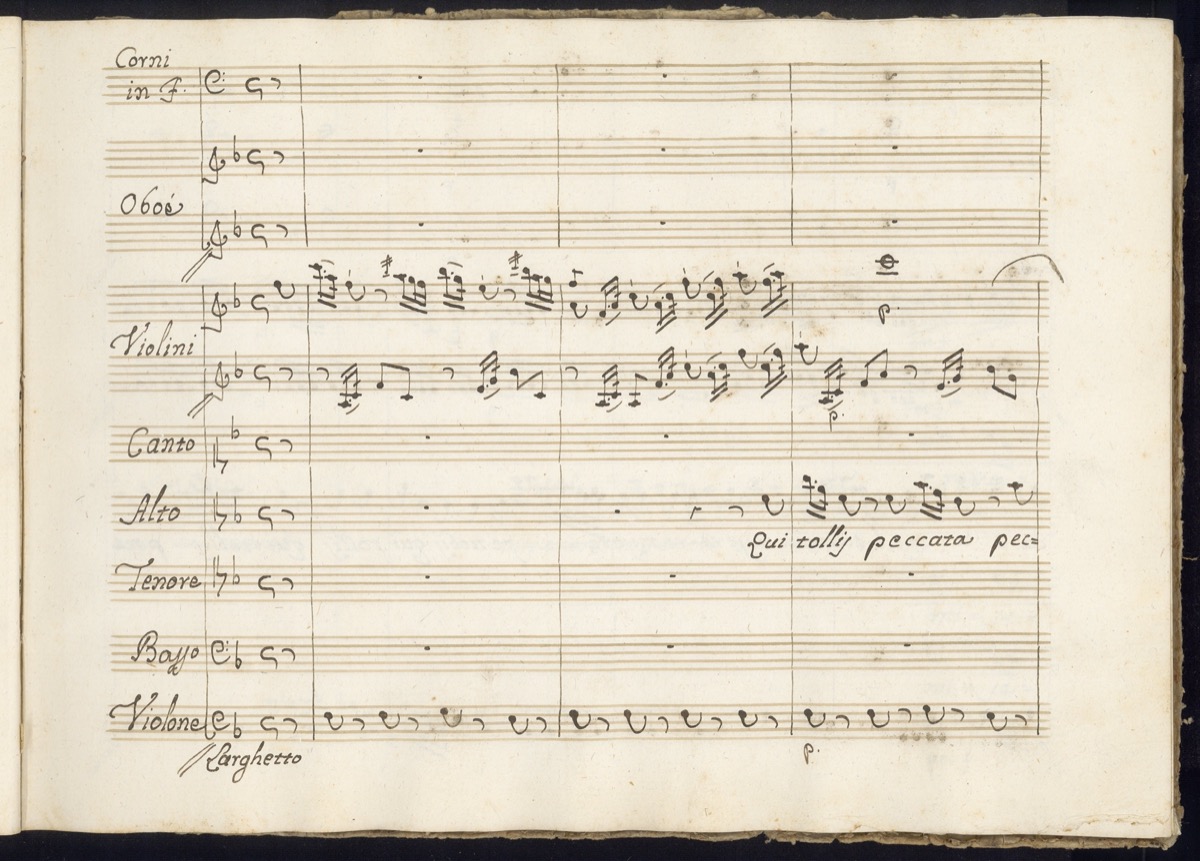 Corni
in F.
Oboé
p.
Violini
p.
Canto
Alto
Qui tollis peccata pec=
Tenore
Basso
Violone
Larghetto
p.